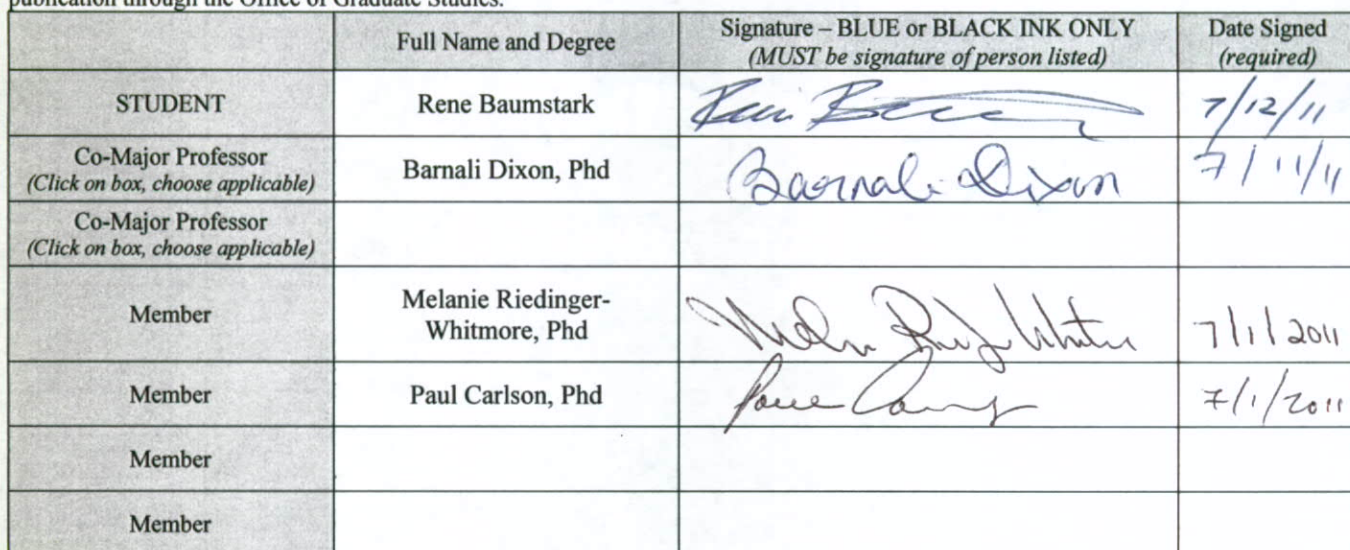 publication through the Office of Graduate Studies.
Full Name and Degree
Signature – BLUE or BLACK INK ONLY
(MUST be signature of person listed)
Date Signed
(required)
STUDENT
Rene Baumstark
7/12/11
Co-Major Professor
(Click on box, choose applicable)
Barnali Dixon, Phd
Barnali Dixon
7/11/11
Co-Major Professor
(Click on box, choose applicable)
Member
Melanie Riedinger-
Whitmore, Phd
7/1/2011
Member
Paul Carlson, Phd
7/1/2011
Member
Member